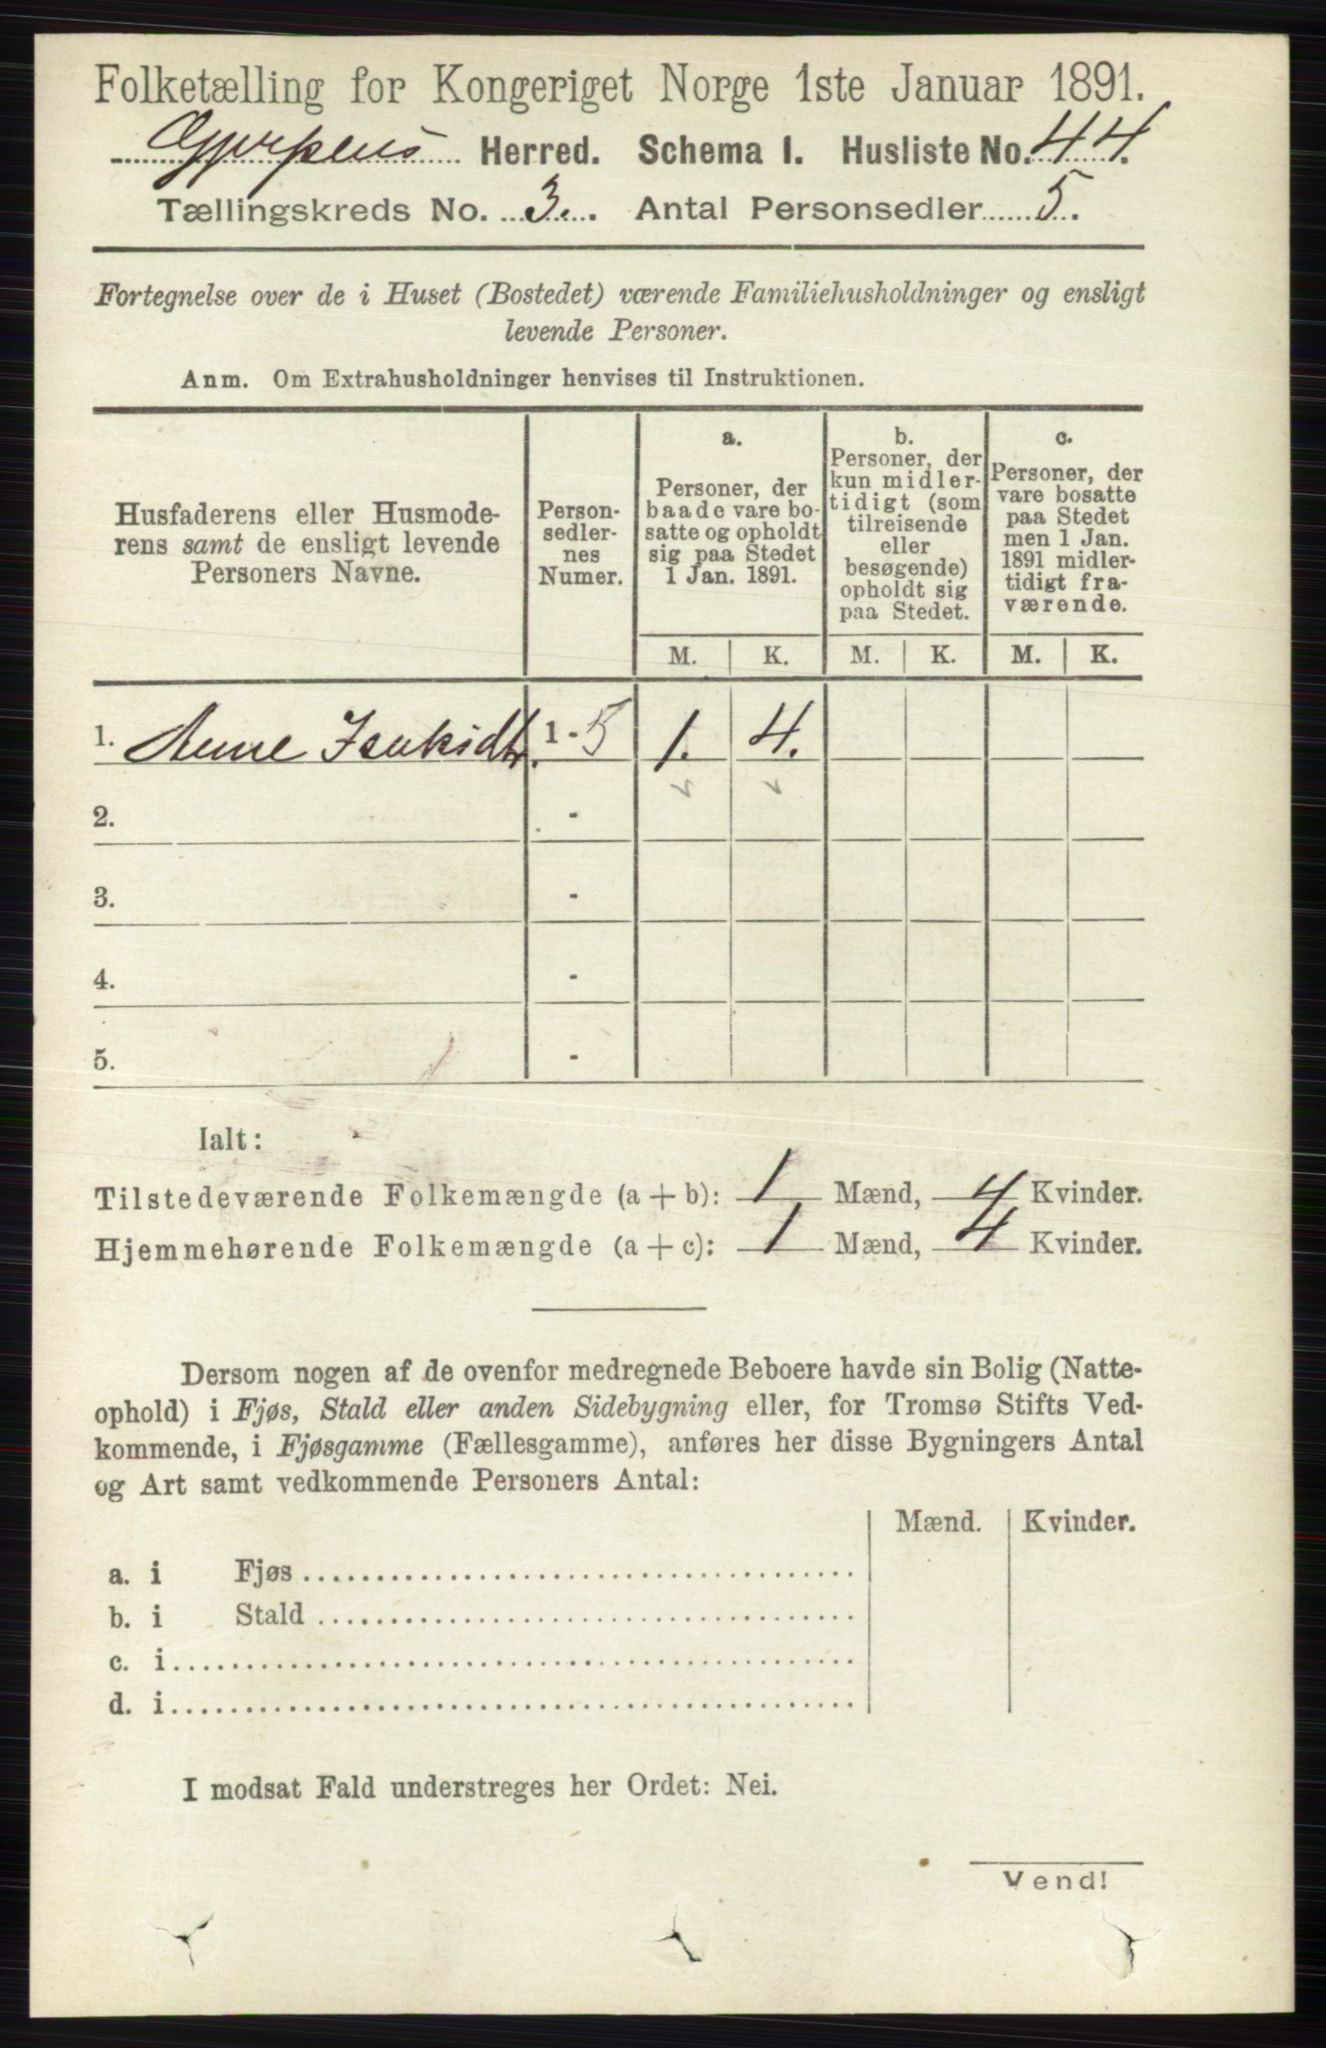 Folketælling for Kongeriget Norge 1ste Januar 1891.
Gjerpens Herred. Schema I. Husliste No. 44.
Tællingskreds No. 3. Antal Personsedler 5.
Fortegnelse over de i Huset (Bostedet) værende Familiehusholdninger og ensligt
levende Personer.
Anm. Om Extrahusholdninger henvises til Instruktionen.
Husfaderens eller Husmode-
rens samt de ensligt levende
Personers Navne.
Person-
sedler-
nes
Numer.
a.
Personer, der
baade vare bo-
satte og opholdt
sig paa Stedet
1 Jan. 1891.
b.
Personer, der
kun midler-
tidigt (som
tilreisende
eller
besøgende)
opholdt sig
paa Stedet.
c.
Personer, der
vare bosatte
paa Stedet
men 1 Jan.
1891 midler-
tidigt fra-
værende.
M. K. M. K. M. K.
1. Anne 1 - 5 1. 4.
2. -
3. -
4. -
5. -
Ialt:
Tilstedeværende Folkemængde (a + b): 1 Mænd, 4 Kvinder.
Hjemmehørende Folkemængde (a + c): 1 Mænd, 4 Kvinder.
Dersom nogen af de ovenfor medregnede Beboere havde sin Bolig (Natte-
ophold) i Fjøs, Stald eller anden Sidebygning eller, for Tromsø Stifts Ved-
kommende, i Fjøsgamme (Fællesgamme), anføres her disse Bygningers Antal
og Art samt vedkommende Personers Antal:
Mænd. Kvinder.
a. i Fjøs
b. i Stald
c. i
d. i
I modsat Fald understreges her Ordet: Nei.
Vend!